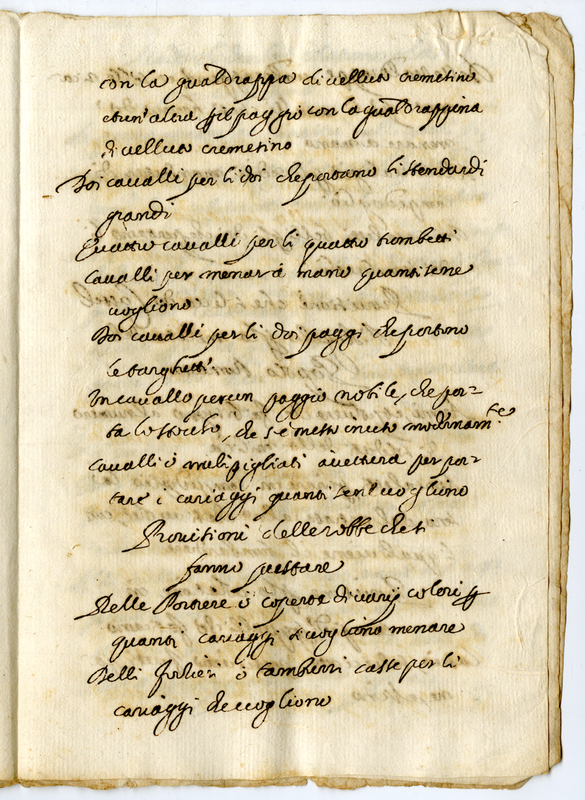 con la gualdrappa di velluto cremetino
et un'altra p il paggio con la gualdrappina
di velluto cremetino
Doi cavalli per li doi che portano li stendardi
grandi
Quattro cavalli per li quattro trombetti
Cavalli per menar à mano quanti sene
vogliono
Doi cavalli per li doi paggi che portono
le targhette
Un cavallo per un paggio nobile, che por=
ta lo stocco, che s'è messo in uso modernam.te
Cavalli ò muli pigliati à vettura per por=
tare i cariaggi quanti sene vogliono
Provitioni delle robbe che si
fanno prestare
Delle Portiere ò coperte di varij colori p
quanti cariaggi si vogliono menare
Delli forzieri ò tamburri casse per li
cariaggi che vogliono